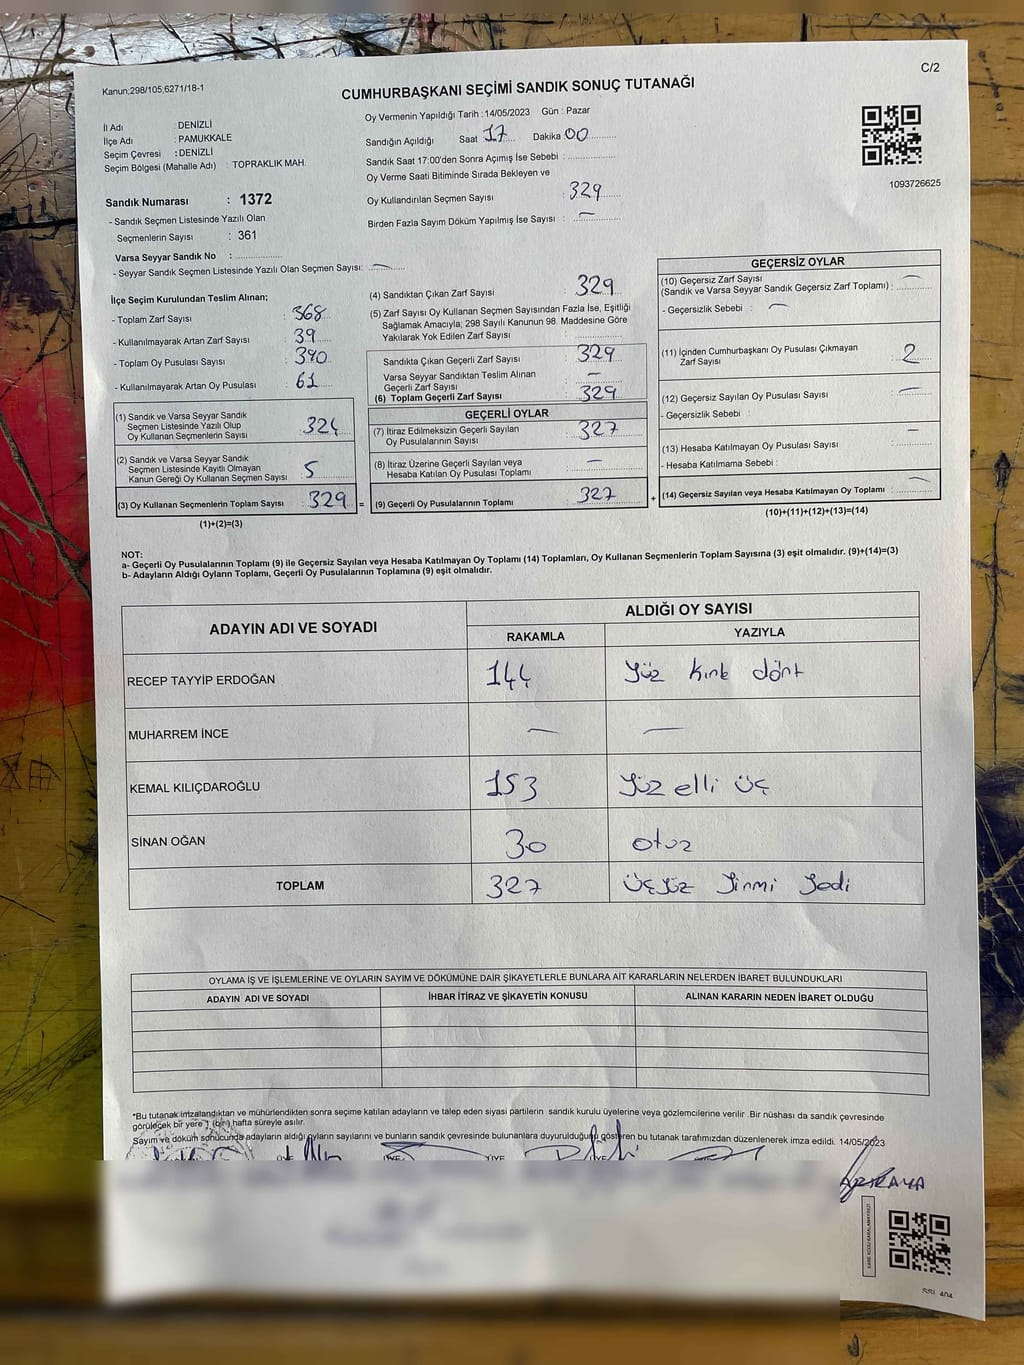 C/2
Kanun;298/105,6271/18-1
CUMHURBAŞKANI SEÇİMİ SANDIK SONUÇ TUTANAĞI
İl Adı : DENİZLİ
İlçe Adı : PAMUKKALE
Seçim Çevresi : DENİZLİ
Seçim Bölgesi (Mahalle Adı) : TOPRAKLIK MAH.
Sandık Numarası : 1372
- Sandık Seçmen Listesinde Yazılı Olan
Seçmenlerin Sayısı : 361
Varsa Seyyar Sandık No :
- Seyyar Sandık Seçmen Listesinde Yazılı Olan Seçmen Sayısı: —
Oy Vermenin Yapıldığı Tarih :14/05/2023 Gün : Pazar
Sandığın Açıldığı Saat 17 Dakika 00
Sandık Saat 17:00'den Sonra Açımış İse Sebebi :
Oy Verme Saati Bitiminde Sırada Bekleyen ve
Oy Kullandırılan Seçmen Sayısı : 329
Birden Fazla Sayım Döküm Yapılmış İse Sayısı : —
1093726625
İlçe Seçim Kurulundan Teslim Alınan;
- Toplam Zarf Sayısı : 368
- Kullanılmayarak Artan Zarf Sayısı : 39
- Toplam Oy Pusulası Sayısı : 390
- Kullanılmayarak Artan Oy Pusulası : 61
(1) Sandık ve Varsa Seyyar Sandık
Seçmen Listesinde Yazılı Olup
Oy Kullanan Seçmenlerin Sayısı : 324
(2) Sandık ve Varsa Seyyar Sandık
Seçmen Listesinde Kayıtlı Olmayan
Kanun Gereği Oy Kullanan Seçmen Sayısı : 5
(3) Oy Kullanan Seçmenlerin Toplam Sayısı : 329 =
(1)+(2)=(3)
(4) Sandıktan Çıkan Zarf Sayısı : 329
(5) Zarf Sayısı Oy Kullanan Seçmen Sayısından Fazla İse, Eşitliği
Sağlamak Amacıyla; 298 Sayılı Kanunun 98. Maddesine Göre
Yakılarak Yok Edilen Zarf Sayısı :
Sandıkta Çıkan Geçerli Zarf Sayısı : 329
Varsa Seyyar Sandıktan Teslim Alınan
Geçerli Zarf Sayısı : —
(6) Toplam Geçerli Zarf Sayısı : 329
GEÇERLİ OYLAR
(7) İtiraz Edilmeksizin Geçerli Sayılan
Oy Pusulalarının Sayısı : 327
(8) İtiraz Üzerine Geçerli Sayılan veya
Hesaba Katılan Oy Pusulası Toplamı : —
(9) Geçerli Oy Pusulalarının Toplamı : 327 +
GEÇERSİZ OYLAR
(10) Geçersiz Zarf Sayısı
(Sandık ve Varsa Seyyar Sandık Geçersiz Zarf Toplamı) : —
- Geçersizlik Sebebi : —
(11) İçinden Cumhurbaşkanı Oy Pusulası Çıkmayan
Zarf Sayısı : 2
(12) Geçersiz Sayılan Oy Pusulası Sayısı : —
- Geçersizlik Sebebi :
(13) Hesaba Katılmayan Oy Pusulası Sayısı : —
- Hesaba Katılmama Sebebi :
(14) Geçersiz Sayılan veya Hesaba Katılmayan Oy Toplamı : —
(10)+(11)+(12)+(13)=(14)
NOT:
a- Geçerli Oy Pusulalarının Toplamı (9) ile Geçersiz Sayılan veya Hesaba Katılmayan Oy Toplamı (14) Toplamları, Oy Kullanan Seçmenlerin Toplam Sayısına (3) eşit olmalıdır. (9)+(14)=(3)
b- Adayların Aldığı Oyların Toplamı, Geçerli Oy Pusulalarının Toplamına (9) eşit olmalıdır.
ADAYIN ADI VE SOYADI ALDIĞI OY SAYISI
RAKAMLA YAZIYLA
RECEP TAYYİP ERDOĞAN 144 Yüz kırk dört
MUHARREM İNCE — —
KEMAL KILIÇDAROĞLU 153 Yüz elli üç
SİNAN OĞAN 30 otuz
TOPLAM 327 üçyüz yirmi yedi
OYLAMA İŞ VE İŞLEMLERİNE VE OYLARIN SAYIM VE DÖKÜMÜNE DAİR ŞİKAYETLERLE BUNLARA AİT KARARLARIN NELERDEN İBARET BULUNDUKLARI
ADAYIN ADI VE SOYADI İHBAR İTİRAZ VE ŞİKAYETİN KONUSU ALINAN KARARIN NEDEN İBARET OLDUĞU
*Bu tutanak imzalandıktan ve mühürlendikten sonra seçime katılan adayların ve talep eden siyasi partilerin sandık kurulu üyelerine veya gözlemcilerine verilir .Bir nüshası da sandık çevresinde
görülecek bir yere 1 (bir) hafta süreyle asılır.
Sayım ve döküm sonucunda adayların aldığı oyların sayılarını ve bunların sandık çevresinde bulunanlara duyurulduğunu gösteren bu tutanak tarafımızdan düzenlenerek imza edildi. 14/05/2023